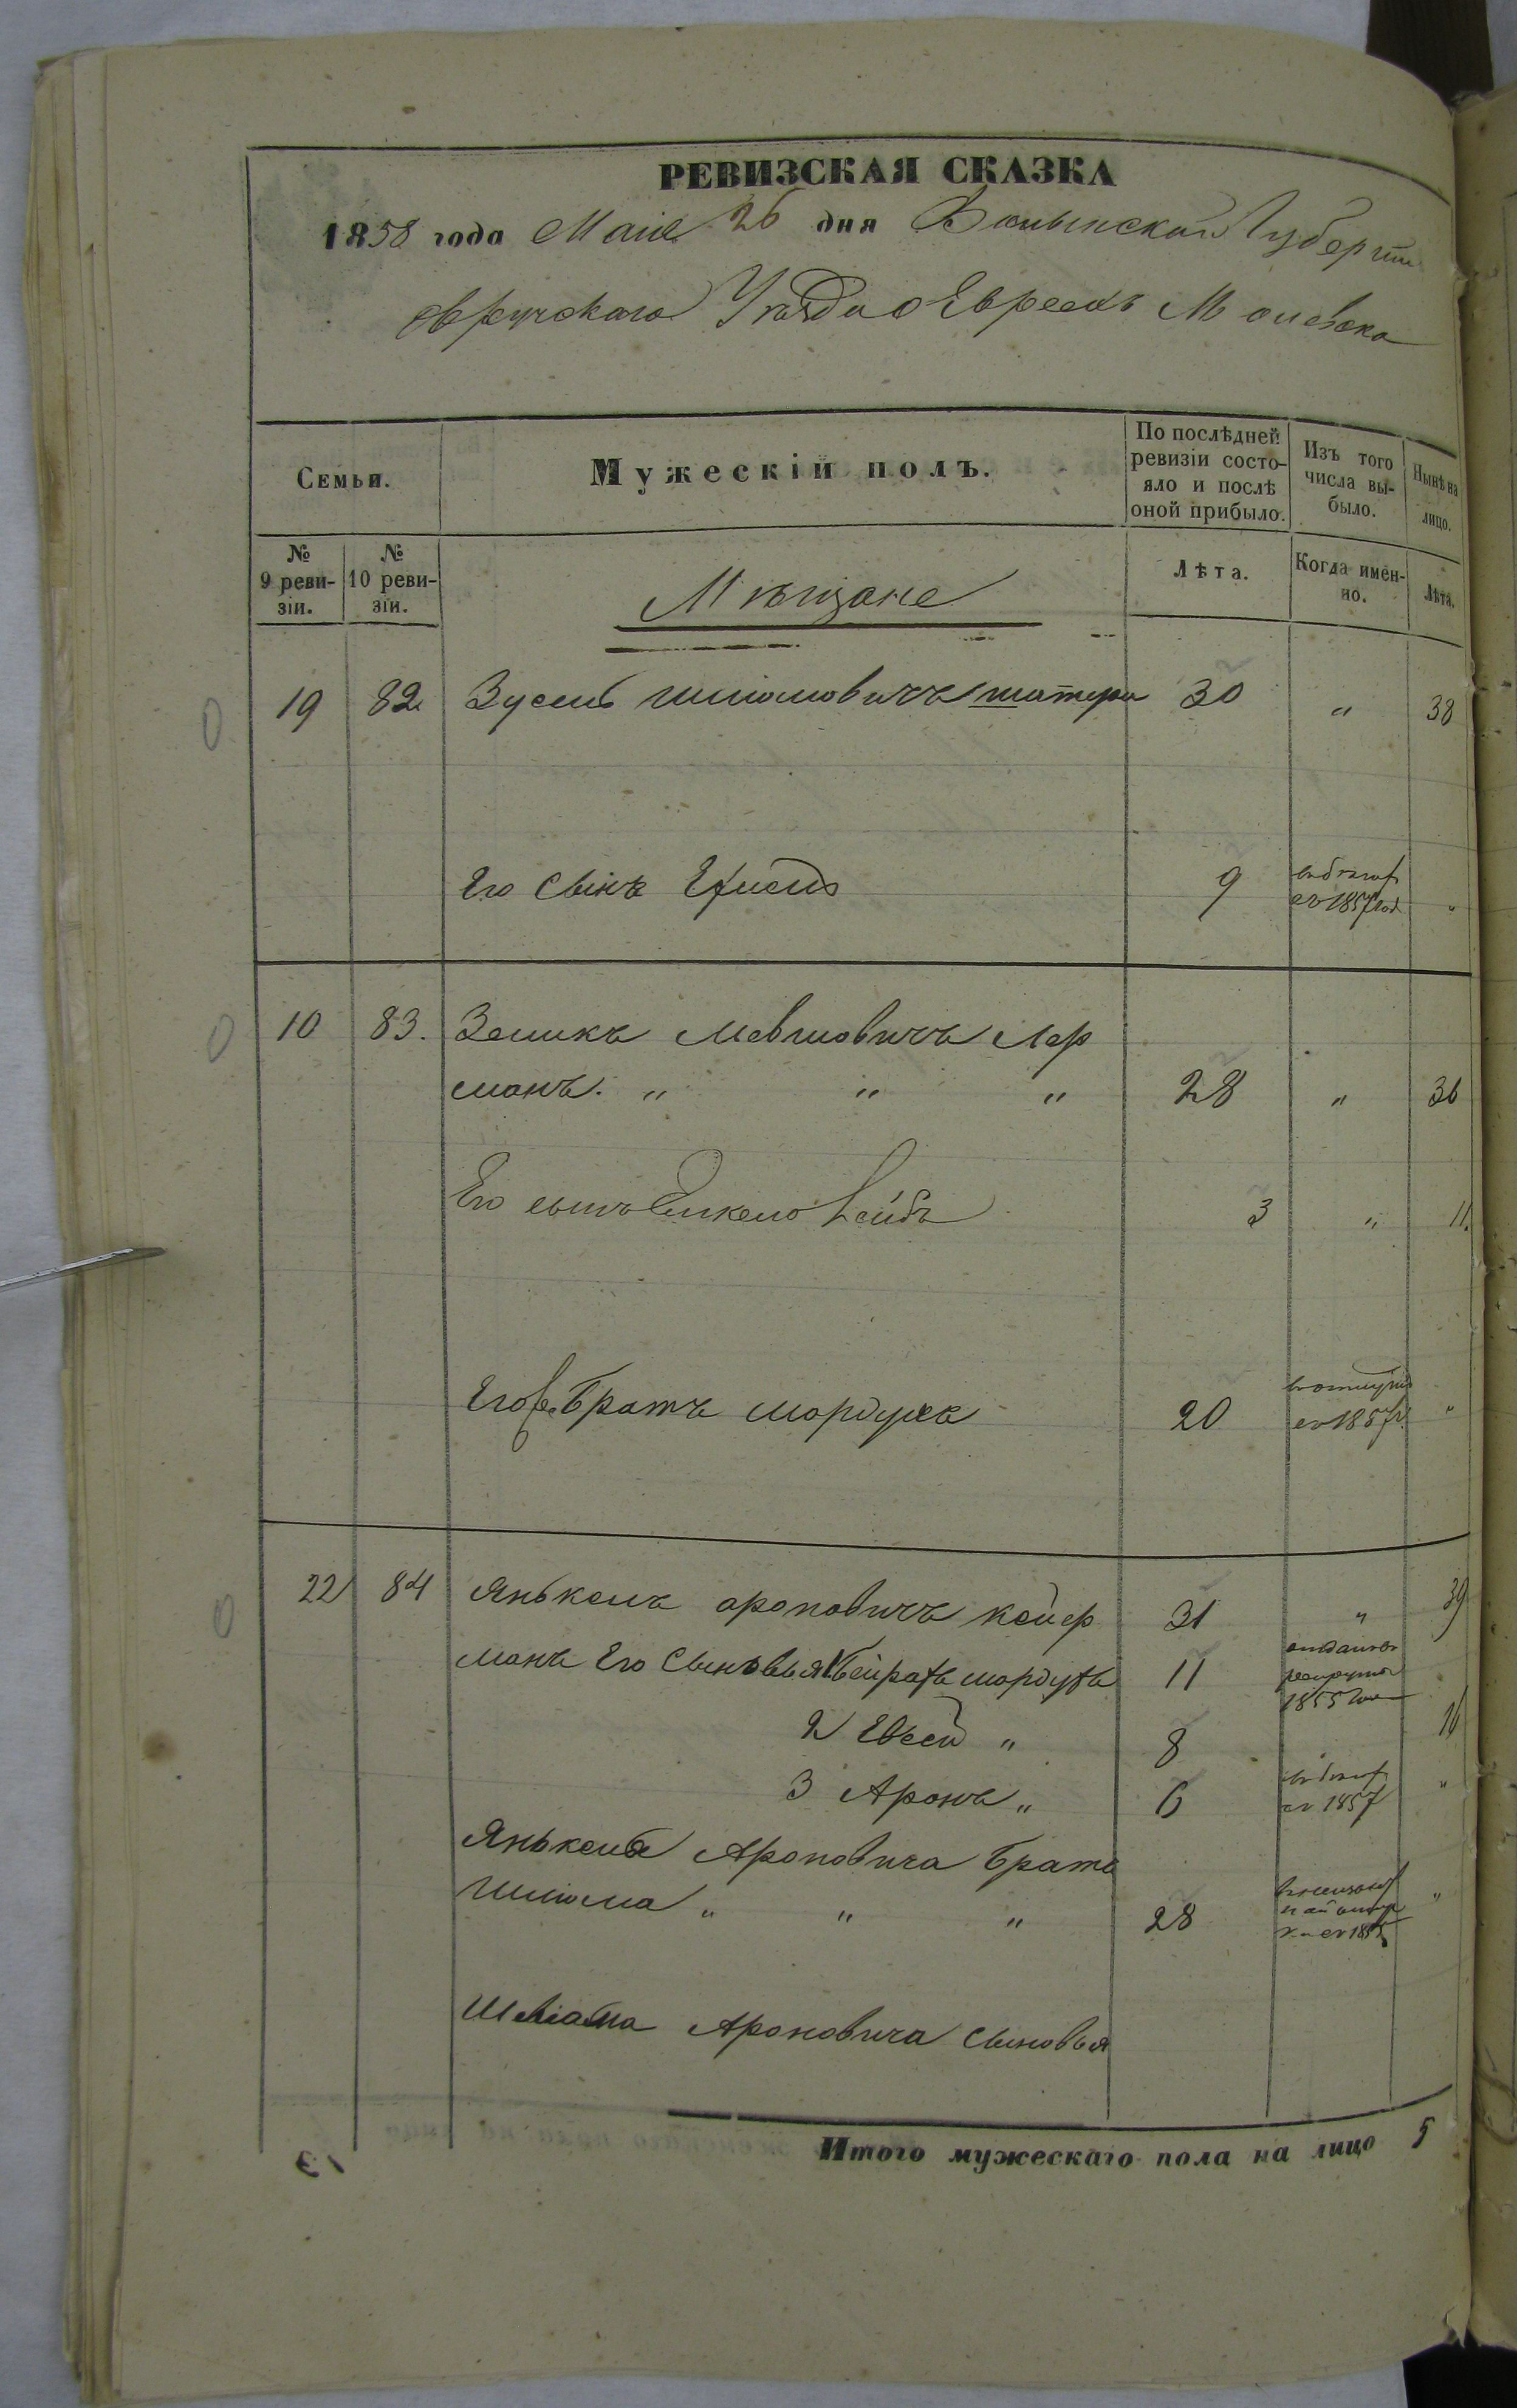 РЕВИЗСКАЯ СКАЗКА
1858 года Маія 26 дня Волынской Губерніи
Овручскаго Уѣзда о Евреяхъ М
Семьи.
Мужескій полъ.
По послѣдней
ревизіи состо-
яло и послѣ
оной прибыло.
Изъ того
числа вы-
было.
Нынѣ на
лицо.
№
9 реви-
зіи.
№
10 реви-
зіи.
Мѣщане
Лѣта.
Когда имен-
но.
Лѣта.
19 82 Зусель Шліомовичъ 30 " 38
Его Сынъ 9
въ 1857 год "
10 83. Зеликъ Мевшовичъ Лер
манъ. " " " 28 " 36
Его сынъ Лейба 3 " 11.
Его Братъ Мордухъ 20 въ 1857 "
22 84 Янькель Ароновичъ Койф 31 " 39
манъ Его Сыновья 1. Мордухъ 11
1855
2 Евсей " 8 16
3 Аронъ " 6
въ 1857 "
Янькеля Ароновича Братъ
Шліома " " " 28 "
Шліома Ароновича Сыновья
Итого мужескаго пола на лицо 5